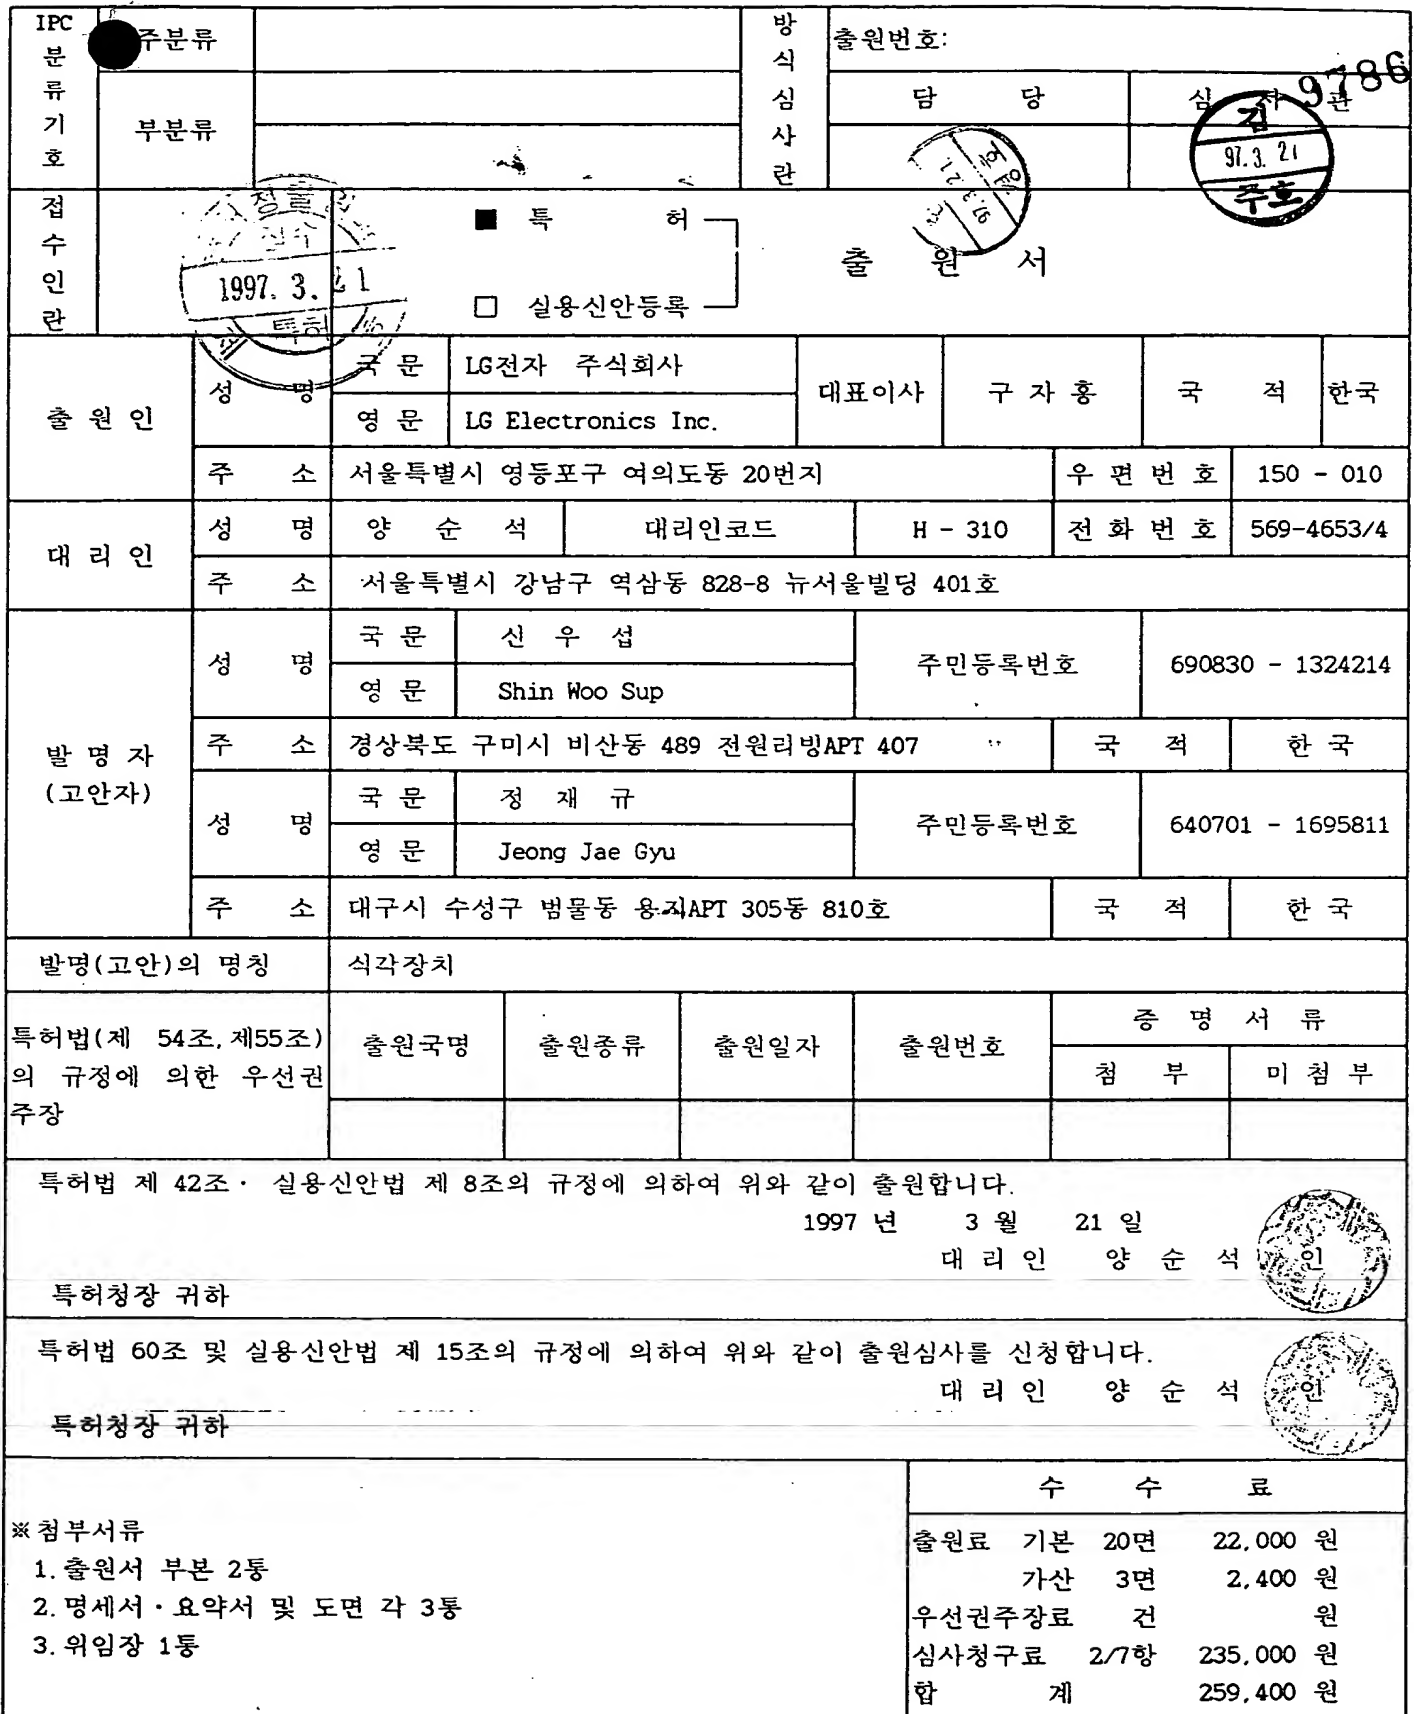 IPC 분류기호
주분류
부분류
방식심사란
출원번호:
9786
담 당
심 사 관
김
97. 3. 21
주호
97. 3. 21
접수인란
접수
1997. 3. 21
특허
■ 특 허
□ 실용신안등록
출 원 서
출 원 인
성 명
국 문
LG전자 주식회사
영 문
LG Electronics Inc.
대표이사
구 자 홍
국 적
한국
주 소
서울특별시 영등포구 여의도동 20번지
우 편 번 호
150 - 010
대 리 인
성 명
양 순 석
대리인코드
H - 310
전 화 번 호
569-4653/4
주 소
서울특별시 강남구 역삼동 828-8 뉴서울빌딩 401호
발 명 자
(고안자)
성 명
국 문
신 우 섭
영 문
Shin Woo Sup
주민등록번호
690830 - 1324214
주 소
경상북도 구미시 비산동 489 전원리빙APT 407
국 적
한 국
성 명
국 문
정 재 규
영 문
Jeong Jae Gyu
주민등록번호
640701 - 1695811
주 소
대구시 수성구 범물동 용지APT 305동 810호
국 적
한 국
발명(고안)의 명칭
식각장치
특허법(제 54조,제55조)
의 규정에 의한 우선권
주장
출원국명
출원종류
출원일자
출원번호
증 명 서 류
첨 부
미 첨 부
특허법 제 42조· 실용신안법 제 8조의 규정에 의하여 위와 같이 출원합니다.
1997 년 3 월 21 일
대 리 인 양 순 석 인
특허청장 귀하
특허법 60조 및 실용신안법 제 15조의 규정에 의하여 위와 같이 출원심사를 신청합니다.
대 리 인 양 순 석 인
특허청장 귀하
※첨부서류
1.출원서 부본 2통
2.명세서·요약서 및 도면 각 3통
3.위임장 1통
수 수 료
출원료 기본 20면 22,000 원
가산 3면 2,400 원
우선권주장료 건 원
심사청구료 2/7항 235,000 원
합 계 259,400 원